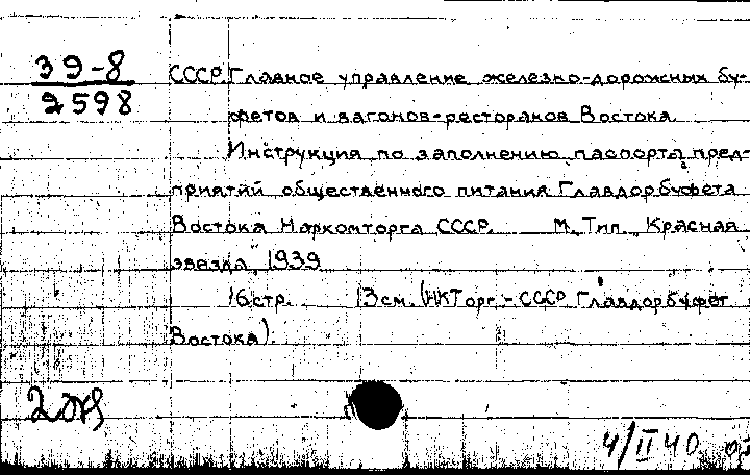 39-8
2598
СССР. Главное управление железно-дорожных бу-
фетов и вагонов-ресторанов Востока.
Инструкция по заполнению паспорта пред-
приятий общественного питания Главдорбуфета
Востока Наркомторга СССР. М. Тип. Красная
звезда, 1939
16 стр. 13 см. (НКТорг.-СССР Главдорбуфет
Востока).
4/II 40